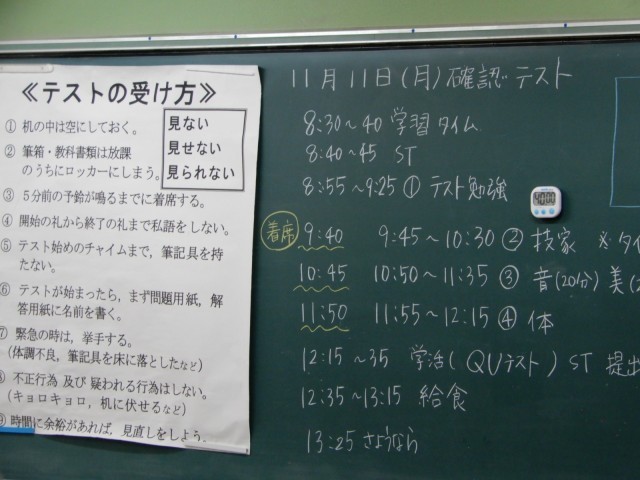 ≪テストの受け方≫
見ない
見せない
見られない
① 机の中は空にしておく。
② 筆箱・教科書類は放課
のうちにロッカーにしまう。
③ 5分前の予鈴が鳴るまでに着席する。
④ 開始の礼から終了の礼まで私語をしない。
⑤ テスト始めのチャイムまで，筆記具を持
たない。
⑥ テストが始まったら，まず問題用紙，解
答用紙に名前を書く。
⑦ 緊急の時は，挙手する。
（体調不良，筆記具を床に落としたなど）
不正行為 及び 疑われる行為はしない。
（キョロキョロ，机に伏せるなど）
時間に余裕があれば，見直しをしよう。
11月11日(月)確認テスト
8:30～40 学習タイム
8:40～45 ST
8:55～9:25 ① テスト勉強
着席 9:40 9:45～10:30 ② 技家 ※タイ
10:45 10:50～11:35 ③ 音(20分) 美(2
11:50 11:55～12:15 ④ 体
12:15～35 学活(QUテスト) ST 提出
12:35～13:15 給食
13:25 さようなら